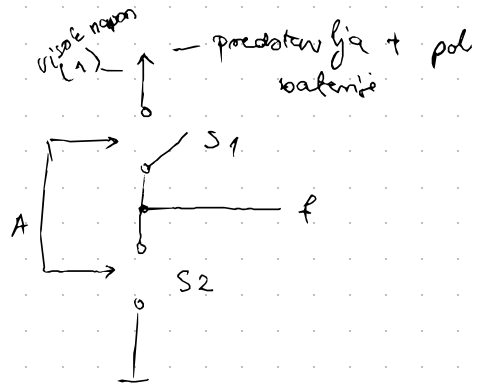 visok napon
(1)
— predstavlja + pol
baterije
S1
f
A
S2